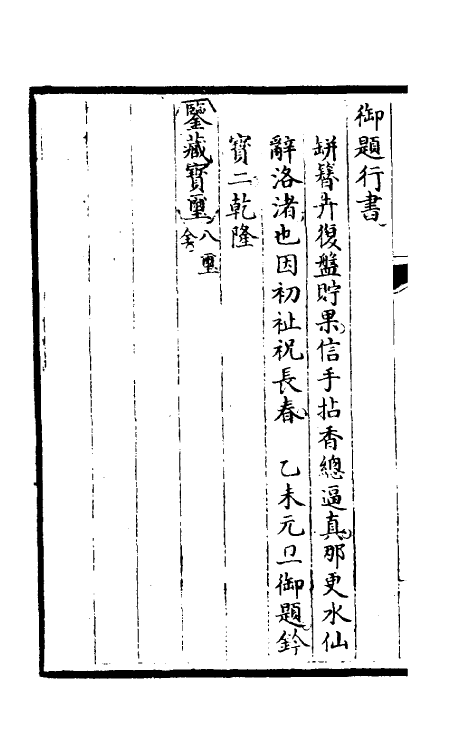 御題行書
缾簪卉復盤貯果信手拈香總逼真那更水仙
辭洛渚也因初祉祝長春 乙未元旦御題鈐
寶二乾隆
鑒藏寶璽八璽全